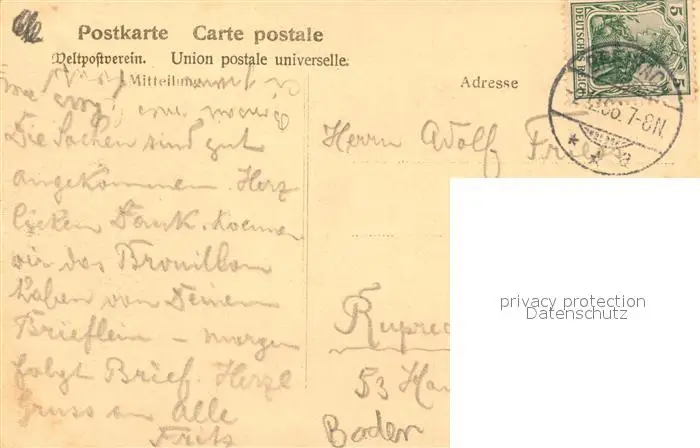 Postkarte Carte postale
Weltpostverein. Union postale universelle.
Mitteilun
Adresse
5 5
DEUTSCHES REICH
06. 7-8N.
* * a
Die Sachen sind gut
angekommen. Herz
lichen Dank. Koennen
wir das Brouillon
haben von Deinem
Brieflein – morgen
folgt Brief. Herzl
Gruss an Alle
Fritz
Herrn Adolf Fries
Ruprec
53 Hau
Baden
privacy protection
Datenschutz